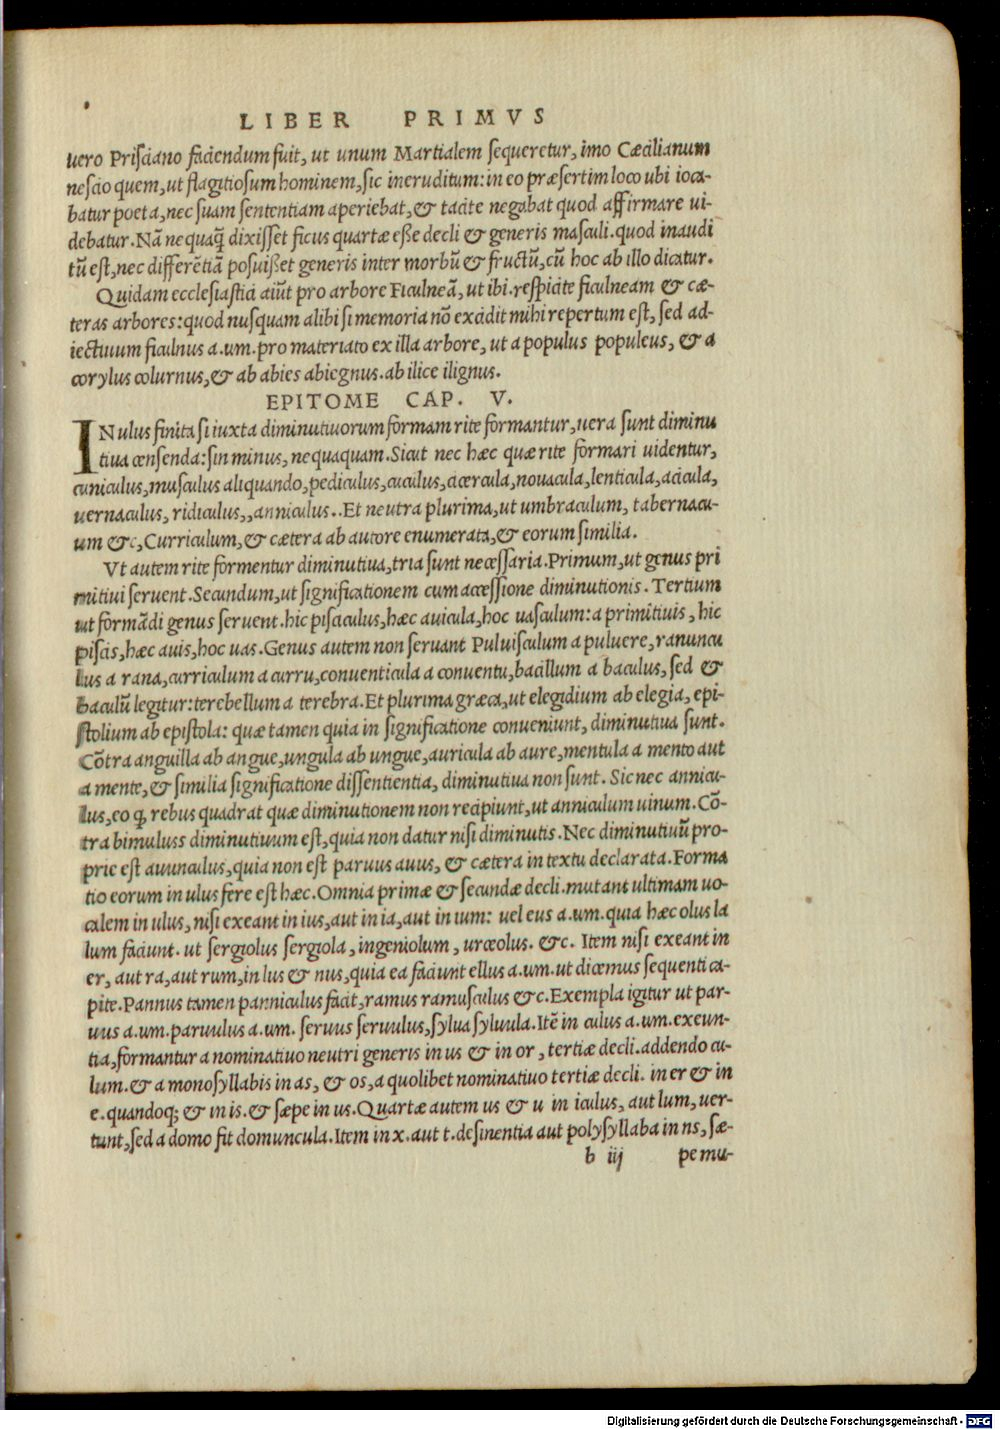 LIBER PRIMVS
uero Prisciano faciendum fuit, ut unum Martialem sequeretur, imo Cæcilianum
nescio quem, ut flagitiosum hominem, sic ineruditum: in eo præsertim loco ubi ioca-
batur poeta, nec suam sententiam aperiebat, & tacite negabat quod affirmare ui-
debatur. Nā nequaq̄ dixisset ficus quartæ esse decli & generis masculi. quod inaudi
tū est, nec differētiā posuisset generis inter morbū & fructū, cū hoc ab illo dicatur.
Quidam ecclesiastici aiūt pro arbore Ficulneā, ut ibi. respicite ficulneam & cæ-
teras arbores: quod nusquam alibi si memoria nō excidit mihi repertum est, sed ad-
iectiuum ficulnus a.um. pro materiato ex illa arbore, ut a populus populeus, & a
corylus colurnus, & ab abies abiegnus. ab ilice ilignus.
EPITOME CAP. V.
IN ulus finita si iuxta diminutiuorum formam rite formantur, uera sunt diminu
tiua censenda: sin minus, nequaquam. Sicut nec hæc quæ rite formari uidentur,
cuniculus, musculus aliquando, pediculus, cuculus, acercula, nouacula, lenticula, acicula,
uernaculus, ridiculus,, anniculus.. Et neutra plurima, ut umbraculum, tabernacu-
um &c, Curriculum, & cætera ab autore enumerata, & eorum similia.
Vt autem rite formentur diminutiua, tria sunt necessaria. Primum, ut genus pri
mitiui seruent. Secundum, ut significationem cum accessione diminutionis. Tertium
ut formādi genus seruent. hic pisciculus, hæc auicula, hoc uasculum: a primitiuis, hic
piscis, hæc auis, hoc uas. Genus autem non seruant Puluisculum a puluere, ranuncu
lus a rana, curriculum a curru, conuenticula a conuentu, bacillum a baculus, sed &
baculū legitur: terebellum a terebra. Et plurima græca, ut elegidium ab elegia, epi-
stolium ab epistola: quæ tamen quia in significatione conueniunt, diminutiua sunt.
Cōtra anguilla ab angue, ungula ab ungue, auricula ab aure, mentula a mento aut
a mente, & similia significatione dissentientia, diminutiua non sunt. Sic nec annicu-
lus, eo q, rebus quadrat quæ diminutionem non recipiunt, ut anniculum uinum. Cō-
tra bimuluss diminutiuum est, quia non datur nisi diminutis. Nec diminutiuū pro-
prie est auunculus, quia non est paruus auus, & cætera in textu declarata. Forma
tio eorum in ulus fere est hæc. Omnia primæ & secundæ decli. mutant ultimam uo-
calem in ulus, nisi exeant in ius, aut in ia, aut in ium: uel eus a.um. quia hæc olus la
lum faciunt. ut sergiolus sergiola, ingeniolum, urceolus. &c. Item nisi exeant in
er, aut ra, aut rum, in lus & nus, quia ea faciunt ellus a.um. ut dicemus sequenti ca-
pite. Pannus tamen panniculus facit, ramus ramusculus &c. Exempla igitur ut par-
uus a.um. paruulus a.um. seruus seruulus, sylua syluula. Itē in culus a.um. exeun-
tia, formantur a nominatiuo neutri generis in us & in or, tertiæ decli. addendo cu-
lum. & a monosyllabis in as, & os, a quolibet nominatiuo tertiæ decli. in er & in
e. quandoq; & in is. & sæpe in us. Quartæ autem us & u in iculus, aut lum, uer-
tunt, sed a domo fit domuncula. Item in x. aut t. desinentia aut polysyllaba in ns, sæ-
b iij pe mu-
Digitalisierung gefördert durch die Deutsche Forschungsgemeinschaft - DFG